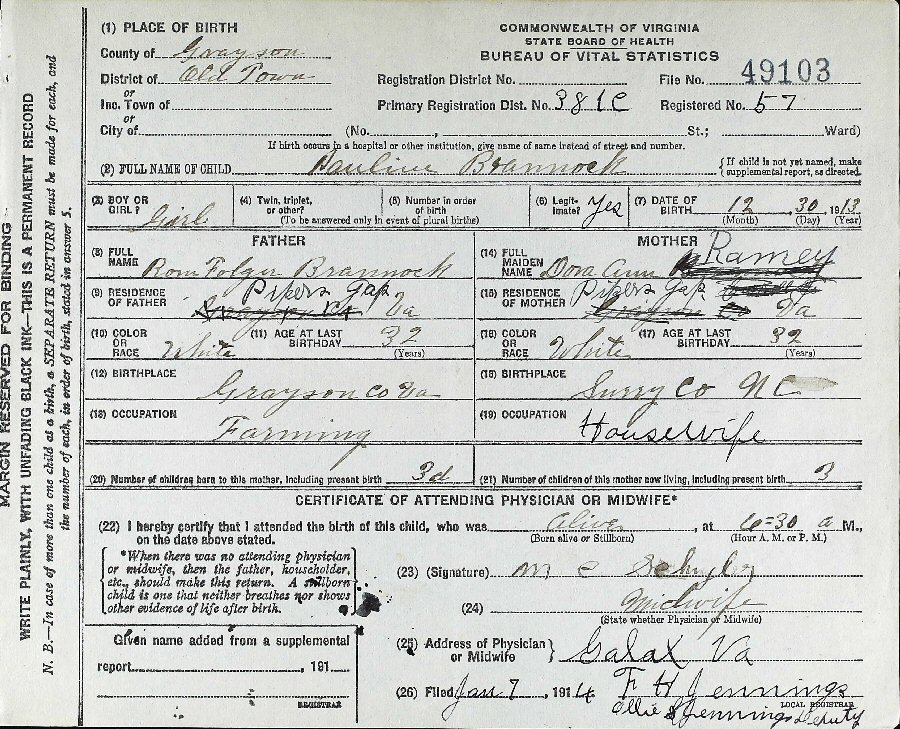 MARGIN RESERVED FOR BINDING
WRITE PLAINLY, WITH UNFADING BLACK INK—THIS IS A PERMANENT RECORD
N. B.—In case of more than one child at a birth, a SEPARATE RETURN must be made for each, and
the number of each, in order of birth, stated in answer 5.
(1) PLACE OF BIRTH
County of Grayson
District of Old Town
or
Inc. Town of
or
City of
COMMONWEALTH OF VIRGINIA
STATE BOARD OF HEALTH
BUREAU OF VITAL STATISTICS
Registration District No. File No. 49103
Primary Registration Dist. No. 381C Registered No. 57
(No. , St.; Ward)
If birth occurs in a hospital or other institution, give name of same instead of street and number.
(2) FULL NAME OF CHILD Pauline Brannock {If child is not yet named, make
supplemental report, as directed.
(3) BOY OR
GIRL? Girl
(4) Twin, triplet,
or other?
(5) Number in order
of birth
(To be answered only in event of plural births)
(6) Legit-
imate? Yes
(7) DATE OF
BIRTH 12 , 30 , 1913
(Month) (Day) (Year)
FATHER
(8) FULL
NAME Rom Folger Brannock
(9) RESIDENCE
OF FATHER Pipers Gap
Va
(10) COLOR
OR
RACE White
(11) AGE AT LAST
BIRTHDAY 32
(Years)
(12) BIRTHPLACE
Grayson Co Va
(13) OCCUPATION
Farming
MOTHER
(14) FULL
MAIDEN
NAME Dora Ann Ramey
(15) RESIDENCE
OF MOTHER Pipers Gap
Va
(16) COLOR
OR
RACE White
(17) AGE AT LAST
BIRTHDAY 32
(Years)
(18) BIRTHPLACE
Surry Co NC
(19) OCCUPATION
Housewife
(20) Number of children born to this mother, including present birth 3d
(21) Number of children of this mother now living, including present birth 3
CERTIFICATE OF ATTENDING PHYSICIAN OR MIDWIFE*
(22) I hereby certify that I attended the birth of this child, who was Alive , at 6=30 a M.,
on the date above stated. (Born alive or Stillborn) (Hour A. M. or P. M.)
*When there was no attending physician
or midwife, then the father, householder,
etc., should make this return. A stillborn
child is one that neither breathes nor shows
other evidence of life after birth.
(23) (Signature) M C
(24) Midwife
(State whether Physician or Midwife)
Given name added from a supplemental
report , 191
REGISTRAR
(25) Address of Physician
or Midwife } Galax Va
(26) Filed Jan 7 , 1914 F H Jennings
LOCAL REGISTRAR
Ollie S Jennings Deputy